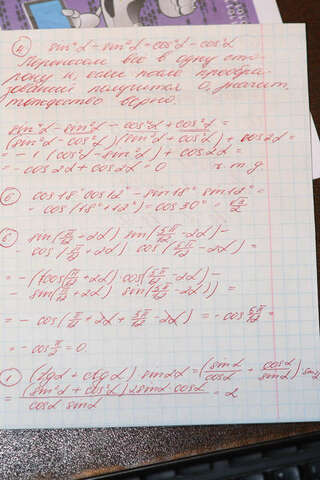 ④ sin⁴α - sin²α = cos⁴α - cos²α
Переносим всё в одну сто-
рону и, если после преобра-
зований получится 0, значит,
тождество верно.
sin⁴α - sin²α - cos⁴α + cos²α =
= (sin²α - cos²α)(sin²α + cos²α) + cos2α =
= -1 (cos²α - sin²α) + cos2α =
= -cos2α + cos2α = 0 ч.т.д.
⑤ cos18° cos12° - sin18° sin12° =
= cos(18° + 12°) = cos30° = √3/2
⑥ sin(π/12 + 2α) sin(5π/12 - 2α) -
- cos(π/12 + 2α) cos(5π/12 - 2α) =
= -(cos(π/12 + 2α) cos(5π/12 - 2α) -
- sin(π/12 + 2α) sin(5π/12 - 2α)) =
= -cos(π/12 + 2α + 5π/12 - 2α) = -cos 6π/12 =
= -cos π/2 = 0.
(tgα + ctgα) sin2α = (sinα/cosα + cosα/sinα) sin2α
= (sin²α + cos²α) 2sinα cosα / cosα sinα = 2